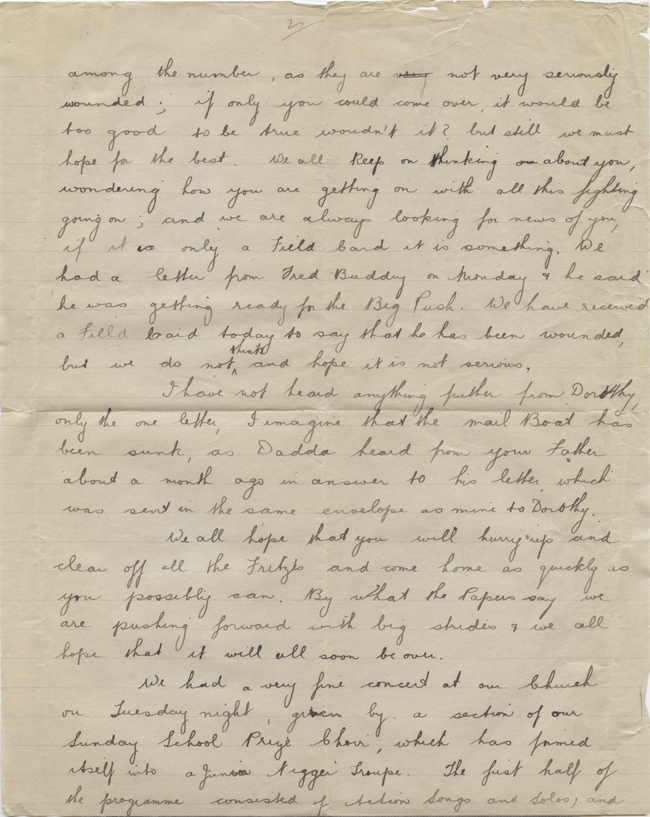 2
among the number, as they are very not very seriously
wounded; if only you could come over, it would be
too good to be true wouldn't it? but still we must
hope for the best. We all keep on thinking on about you,
wondering how you are getting on with all this fighting
going on; and we are always looking for news of you,
if it is only a Field Card it is something. We
had a letter from Fred Buddry on Monday & he said
he was getting ready for the Big Push. We have received
a Field Card today to say that he has been wounded,
but we do not think and hope it is not serious.
I have not heard anything further from Dorothy,
only the one letter, I imagine that the mail Boat has
been sunk, as Dadda heard from your Father
about a month ago in answer to his letter which
was sent in the same envelope as mine to Dorothy.
We all hope that you will hurry up and
clear off all the Fritz's and come home as quickly as
you possibly can. By what the Papers say we
are pushing forward with big strides & we all
hope that it will all soon be over.
We had a very fine concert at our Church
on Tuesday night, given by a section of our
Sunday School Prize Choir, which has formed
itself into a Junior Nigger Troupe. The first half of
the programme consisted of Action Songs and Solos; and